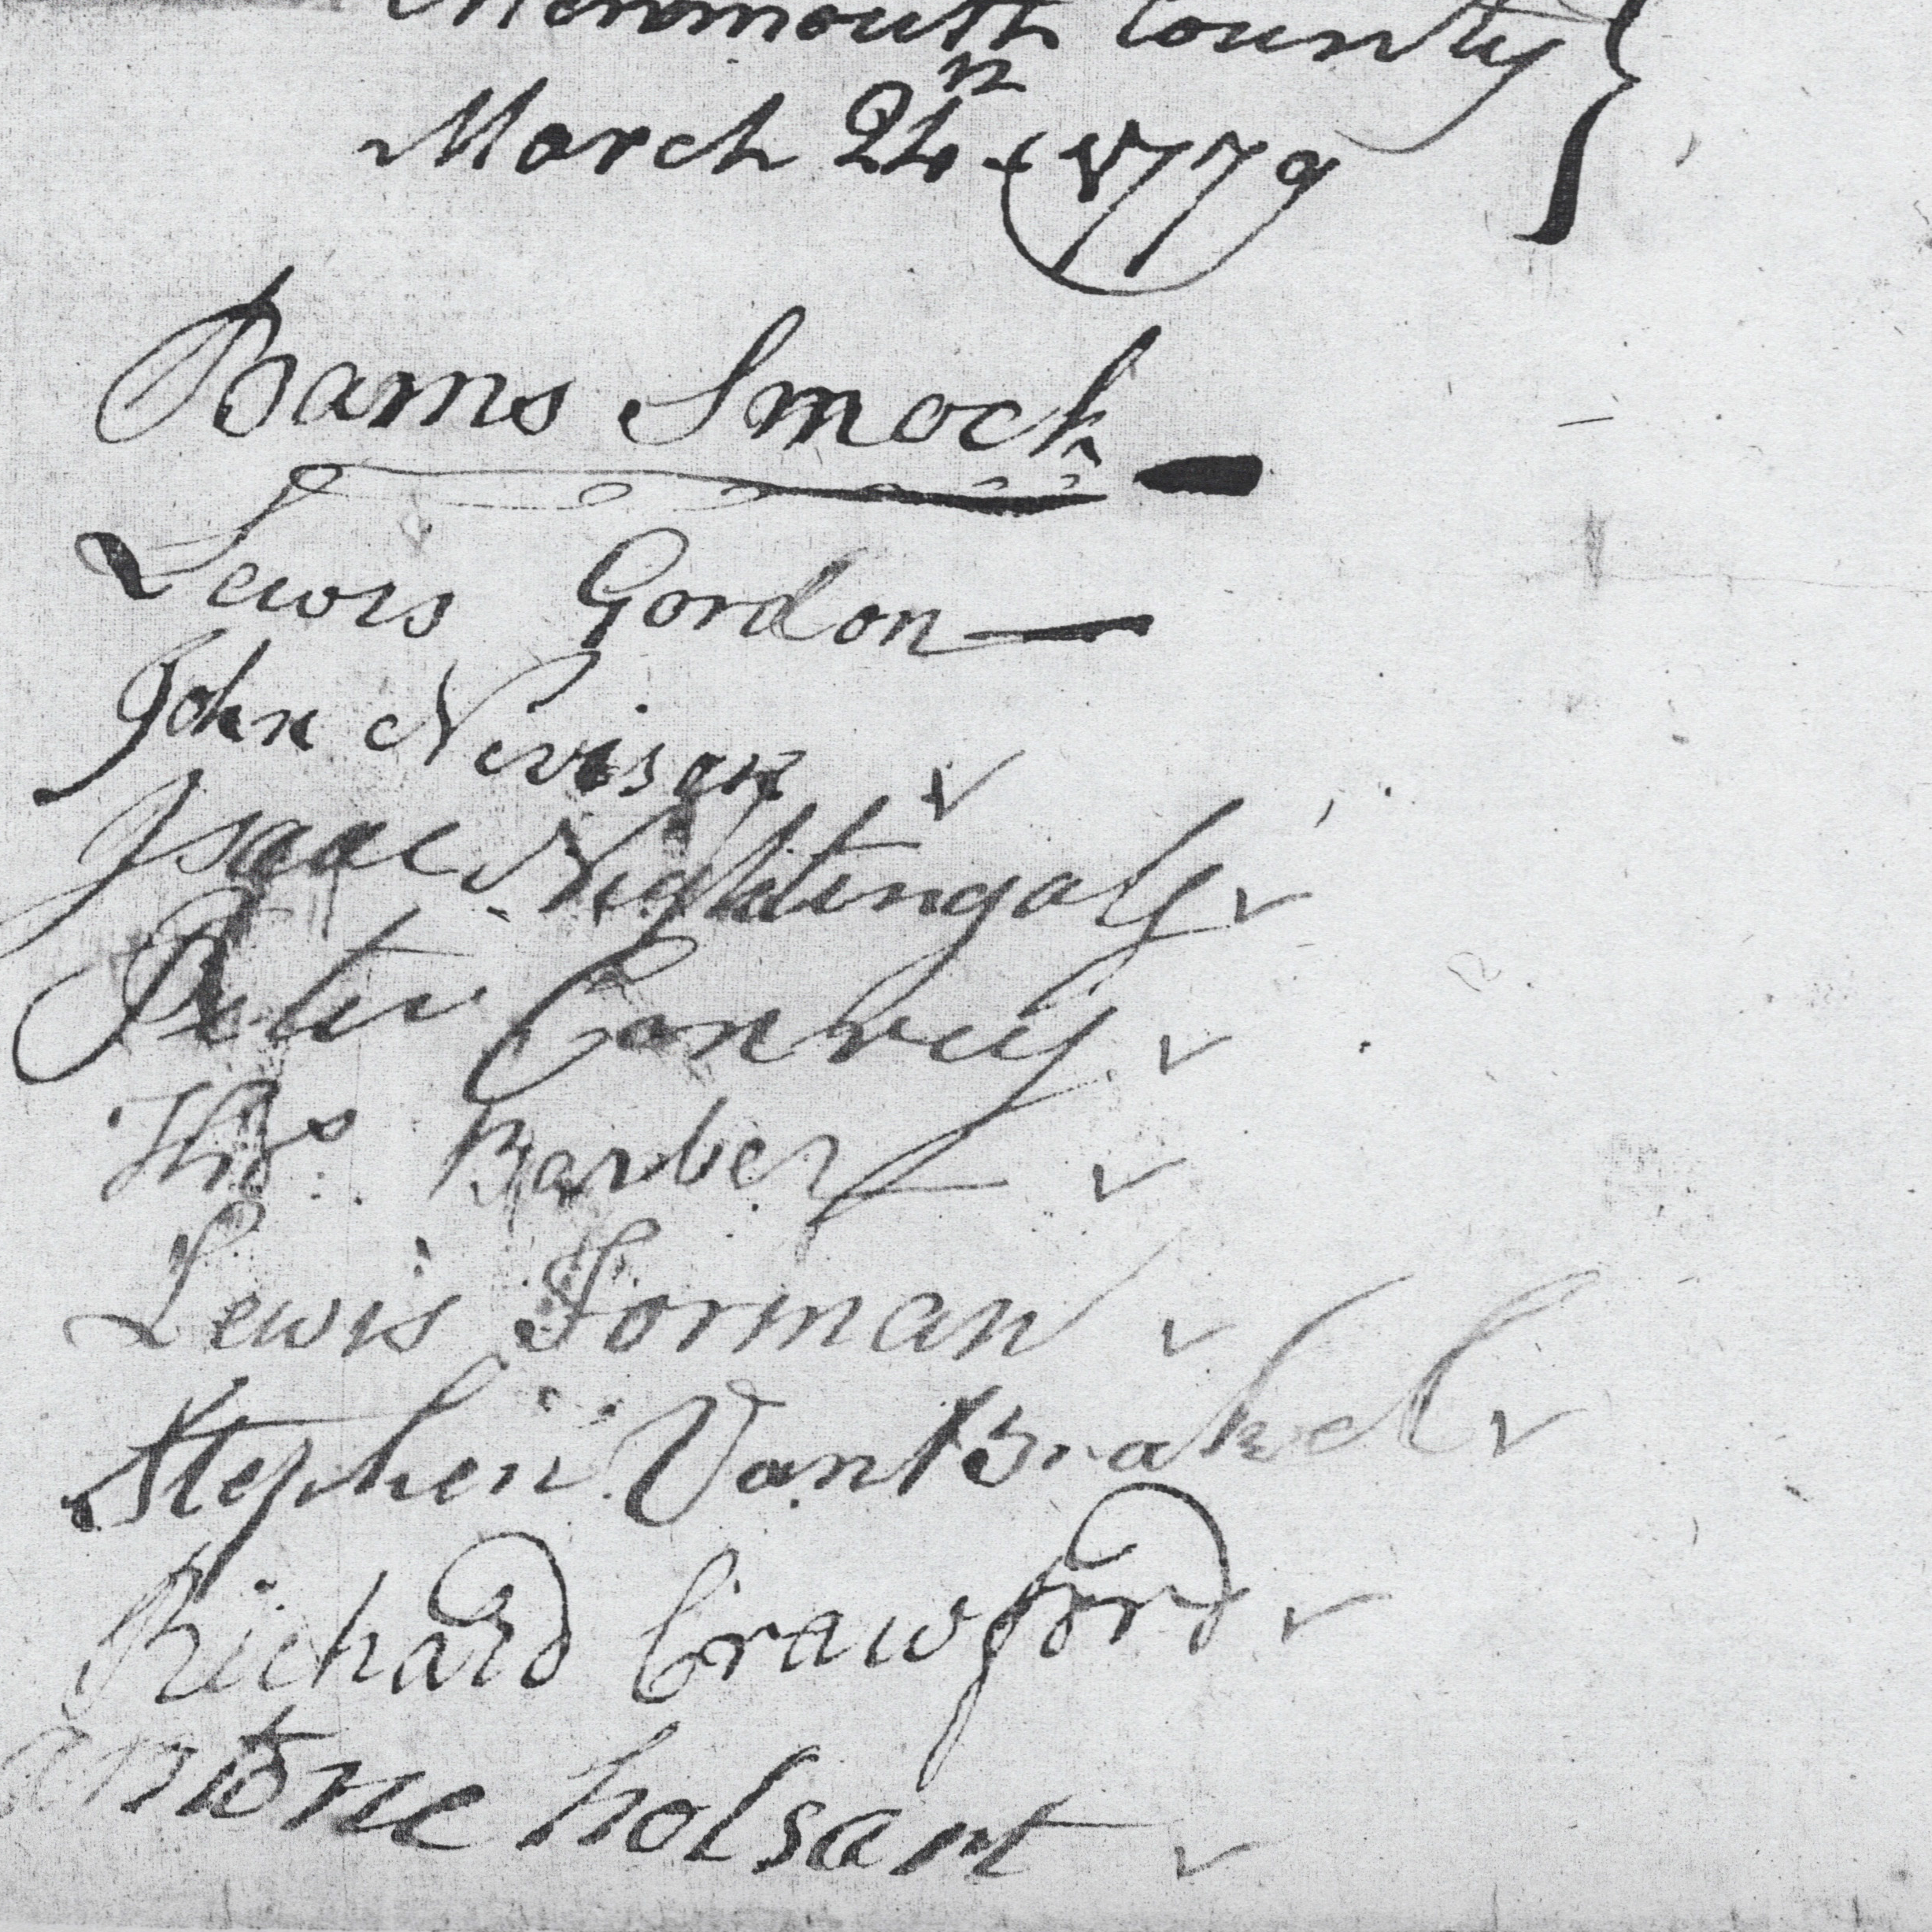 Monmouth County
March 24th 1779
Barns Smock
Lewis Gordon
John Nivison
Isaac Nightingale
Peter Conrey
Thos Barber
Lewis Forman
Stephen VanBrakel
Richard Crawford
antone holsart